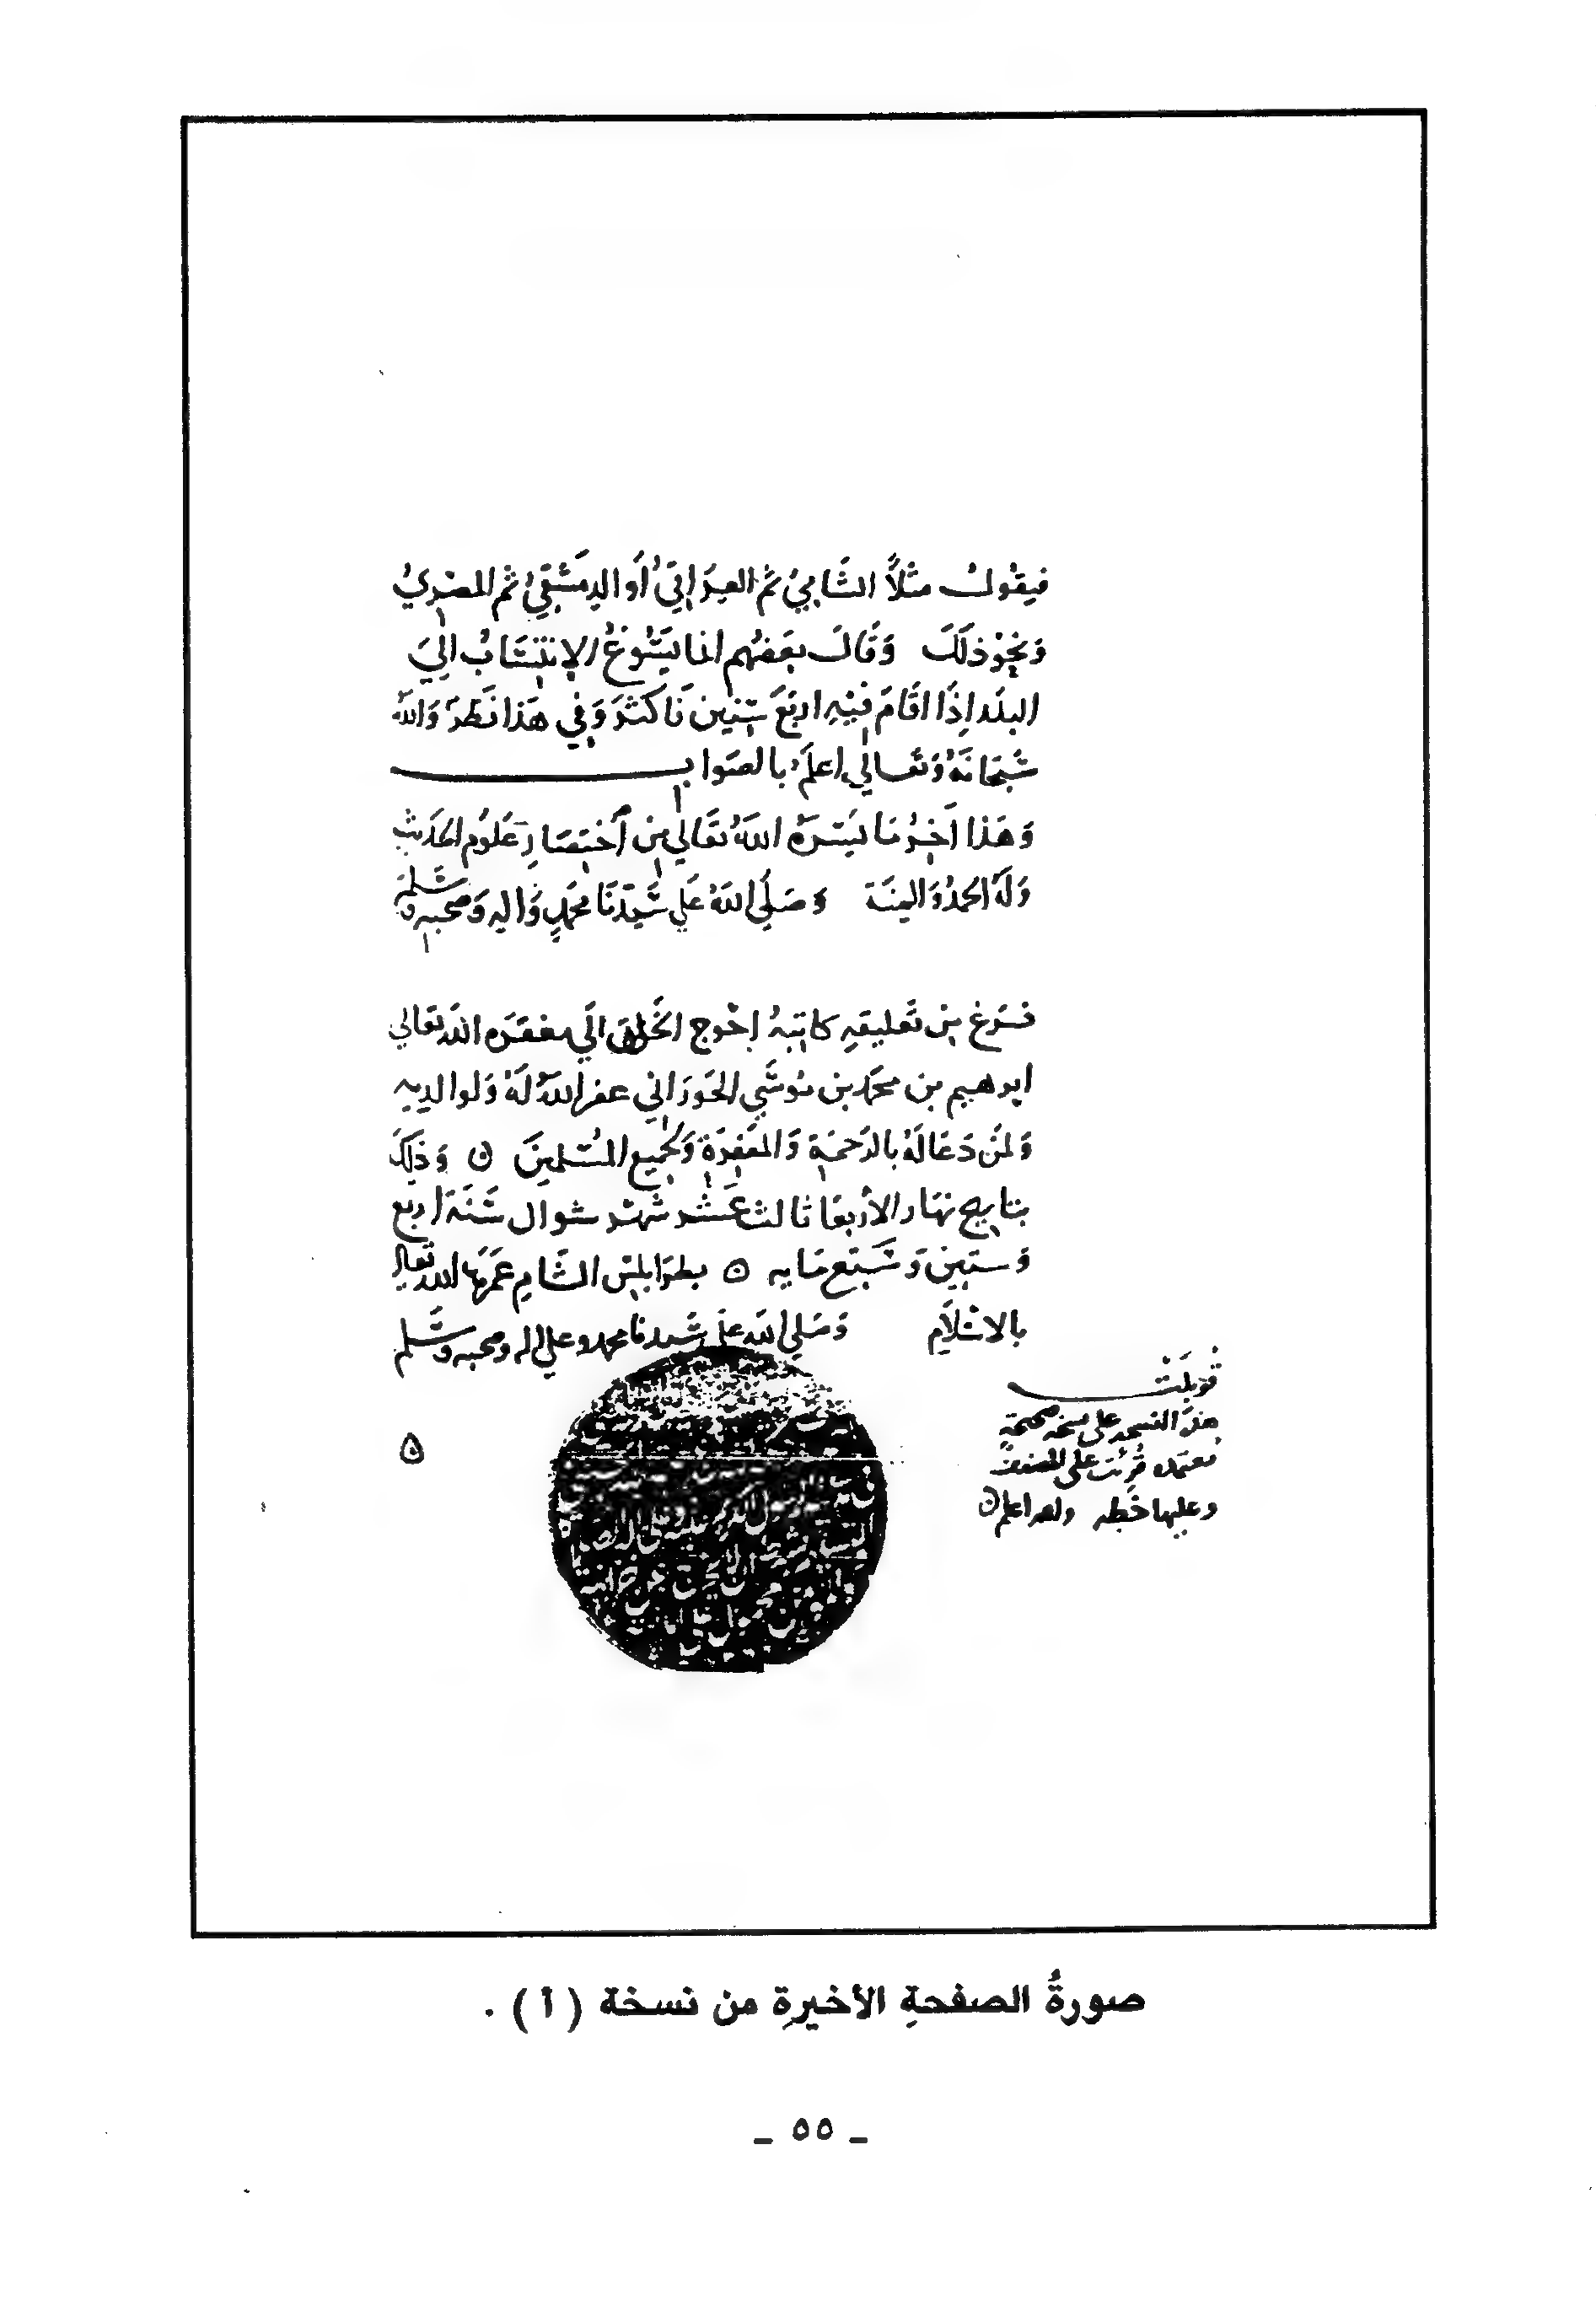 فيقُولُ مثلاً الشَامِيُ ثم العِرَاقِيُ أو الدِمَشقيُ ثم المصْرِيُ
وَنحوْ ذلَكَ وَقَالَ بعَضهُم انما يَسُوغُ الإنتسَابُ الِيَ
البلَد اِذَا اقَامَ فيْهِ اربَعَ سِنين فَاكثرَ وَفِي هَذا نَظَرٌ وَاللهُ
سُبحَانَهُ وَتعَالي اعلَمُ بالصَواب
وَهَذا آخِرُ مَا يَسَرَهُ اللهُ تعَالي مِن اختِصَارِ عَلوُم الحَدَيثِ
وَلَهُ الحمدُ وَالمِنَة وَصَلَي اللهُ عَلي سَيِدِنَا محمَدٍ وَالِهِ وَصَحبهِ وسَلم
فَرَغ مِن تعَليقهِ كاتبهُ احْوج الخَلق الَي مغفَرَه الله تعَالي
ابرهيم بن محمَد بن مُوسَي الحَورَاني غفر اللهُ لَهُ وَلوالديه
وَلمَن دَعَا لَهُ بالرَحمَةِ وَالمغَفِرَةِ وَلجَميعِ المُسلمينَ ۞ وَذلِكَ
بتاريخ نهَار الأربعَا ثالث عَشر شهَر شوال سَنَة اربع
وَستينَ وَسَبَع مَايه ۞ بطرَابلسَ الشَام عَمَرَها الله تعَالي
بالاسْلاَمِ وَصَلي الله علَي سَيدنا محمد وعلي اله وصحبه وسَلم
قُوبلَت
هذه النسخه على نسخه صحيحةٍ
معتمده قُرِئت على المصنف
وعليها خَطه والله اعلم ۞
۞
صورةُ الصفحةِ الأخيرةِ من نسخة ( أ ) .
ـ ٥٥ ـ